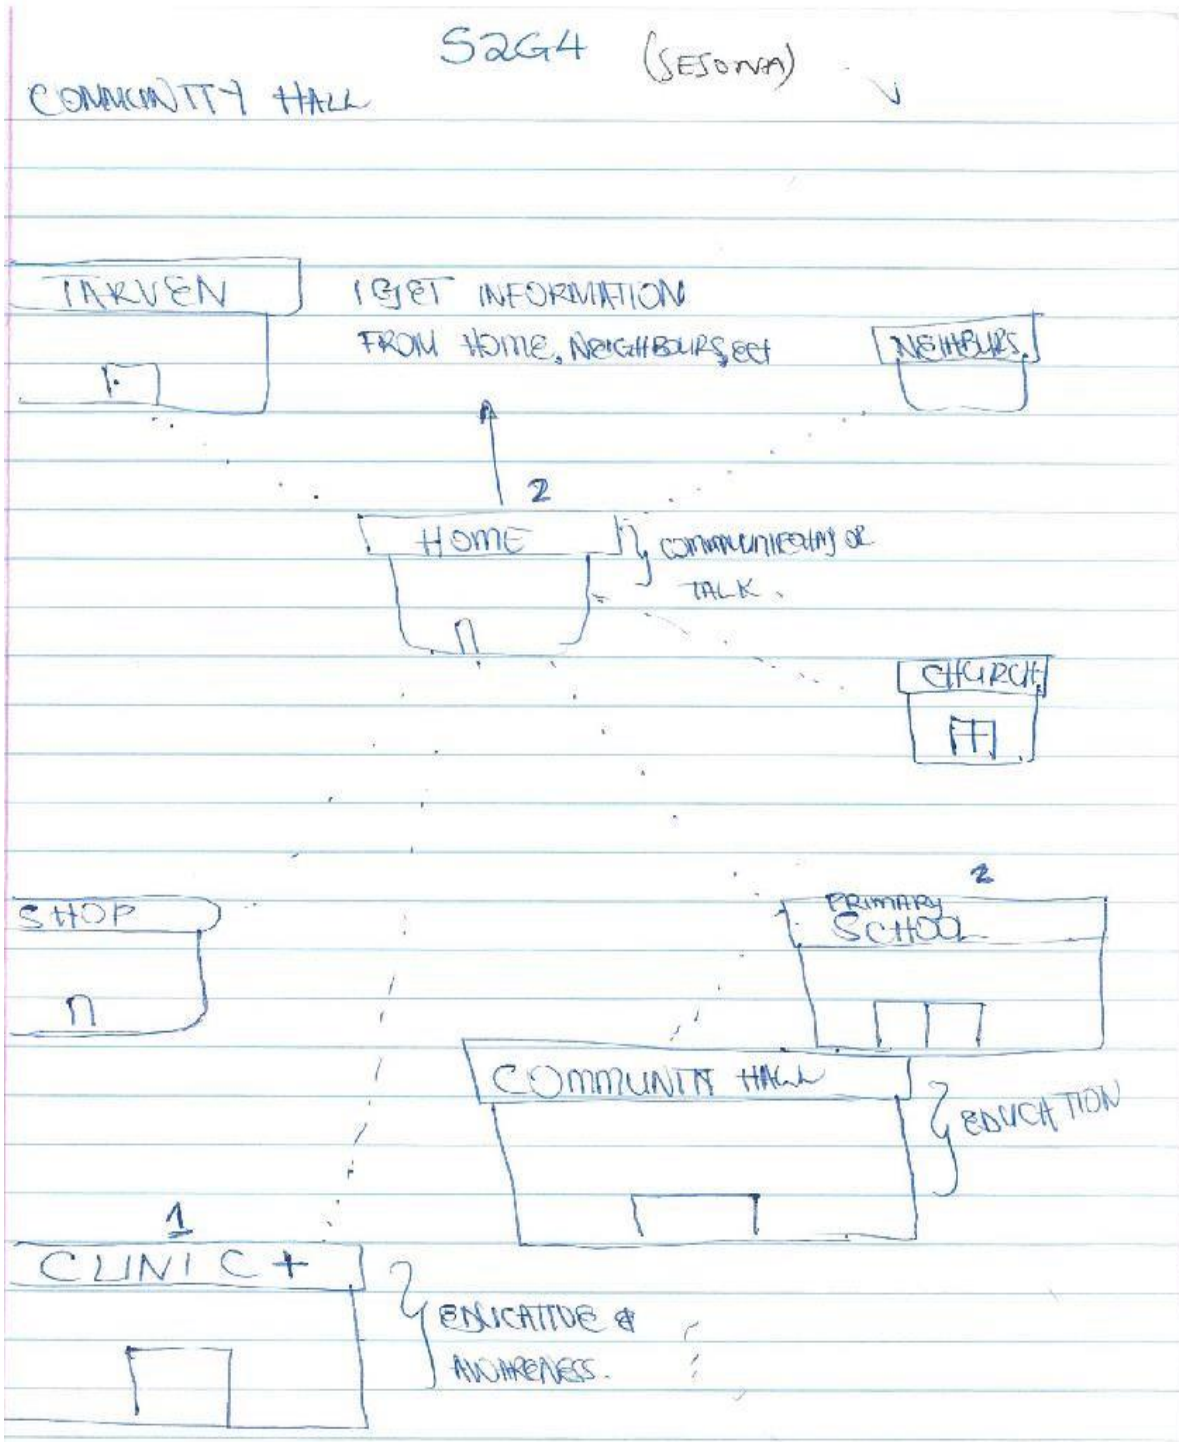 S2G4 (SESONA)
COMMUNITY HALL
TARVEN
I GET INFORMATION
FROM HOME, NEIGHBOURS, ECT
NEIHBURS
2
HOME
COMMUNICATING OR
TALK.
CHURCH
2
SHOP
PRIMARY
SCHOOL
COMMUNITY HALL
EDUCATION
1
CLINIC +
EDUCATIVE &
AWARENESS.